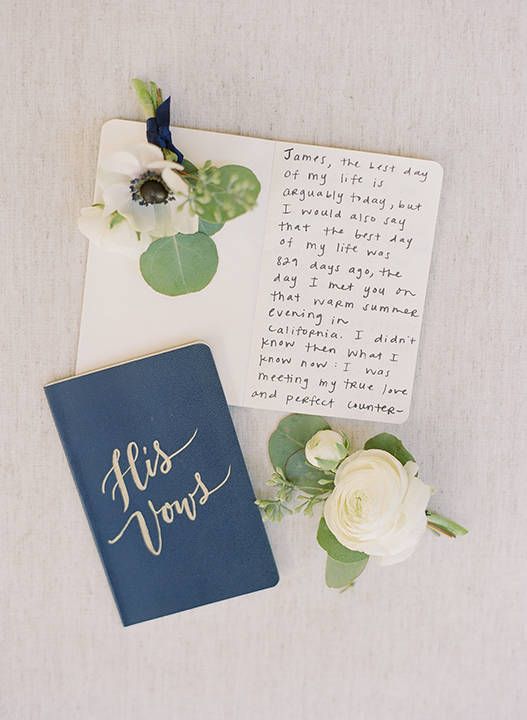 James, the best day
of my life is
arguably today, but
I would also say
that the best day
of my life was
829 days ago, the
day I met you on
that warm summer
evening in
California. I didn't
know then what I
know now: I was
meeting my true love
and perfect counter-
His
Vows